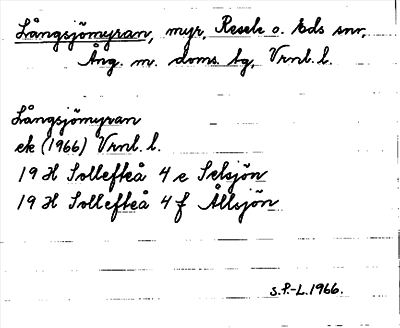 Långsjömyran, myr, Resele o. Eds snr,
Ång. m. doms. tg, Vrnl. l.
Långsjömyran
ek (1966) Vrnl. l.
19 H Sollefteå 4 e Selsjön
19 H Sollefteå 4 f Ållsjön
S.P.-L. 1966.